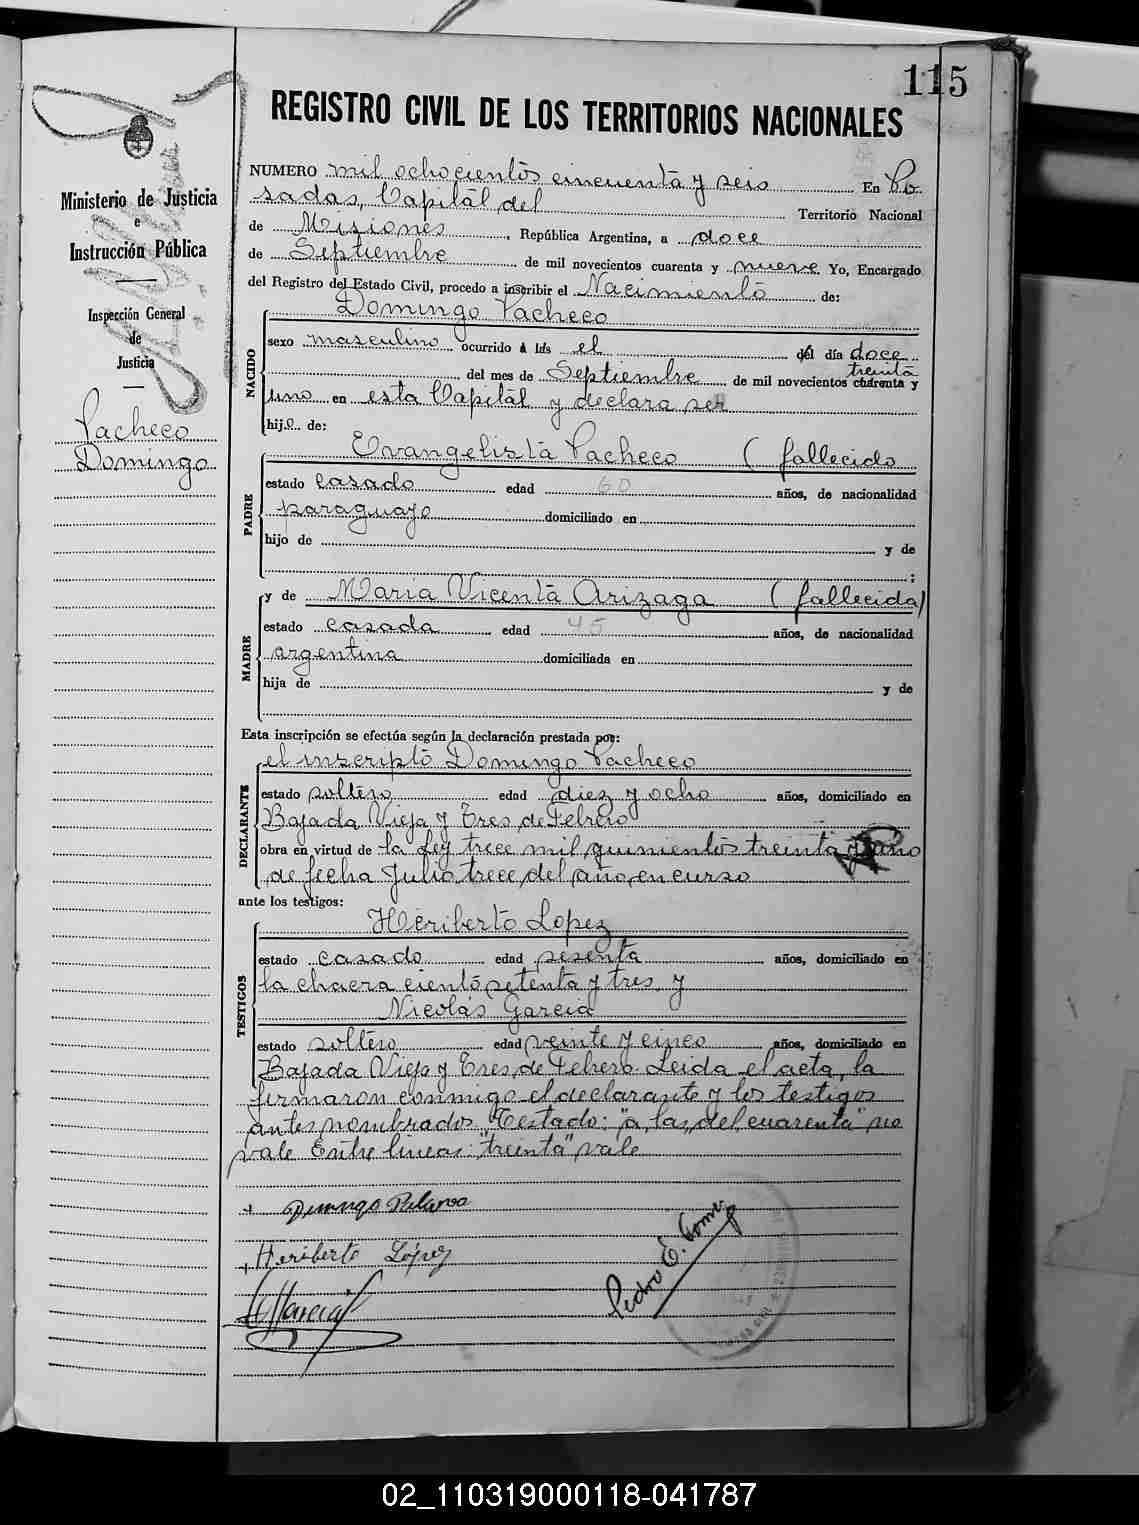 115
REGISTRO CIVIL DE LOS TERRITORIOS NACIONALES
Ministerio de Justicia
e
Instrucción Pública
Inspección General
de
Justicia
Pacheco
Domingo
NUMERO mil ochocientos cincuenta y seis En Po
sadas, Capital del Territorio Nacional
de Misiones, República Argentina, a doce
de Septiembre de mil novecientos cuarenta y nueve Yo, Encargado
del Registro del Estado Civil, procedo a inscribir el Nacimiento de:
NACIDO
Domingo Pacheco
sexo masculino ocurrido á las el del día doce
treinta
del mes de Septiembre de mil novecientos cuarenta y
uno en esta Capital y declara ser
hijo de:
PADRE
Evangelista Pacheco (fallecido
estado casado edad 60 años, de nacionalidad
paraguayo domiciliado en
hijo de y de
:
MADRE
y de Maria Vicenta Arizaga (fallecida)
estado casada edad 45 años, de nacionalidad
argentina domiciliada en
hija de y de
Esta inscripción se efectúa según la declaración prestada por:
DECLARANTE
el inscripto Domingo Pacheco
estado soltero edad diez y ocho años, domiciliado en
Bajada Vieja y Tres de Febrero
obra en virtud de la Ley trece mil quinientos treinta y
de fecha Julio trece del año en curso
ante los testigos:
TESTIGOS
Heriberto Lopez
estado casado edad sesenta años, domiciliado en
la chacra ciento setenta y tres y
Nicolás Garcia
estado soltero edad veinte y cinco años, domiciliado en
Bajada Vieja y Tres de Febrero. Leida el acta, la
firmaron conmigo el declarante y los testigos
antes nombrados. Testado: "a las, del, cuarenta" no
vale. Entre lineas: "treinta" vale
Heriberto López
Pedro E. Gomez
02_110319000118-041787